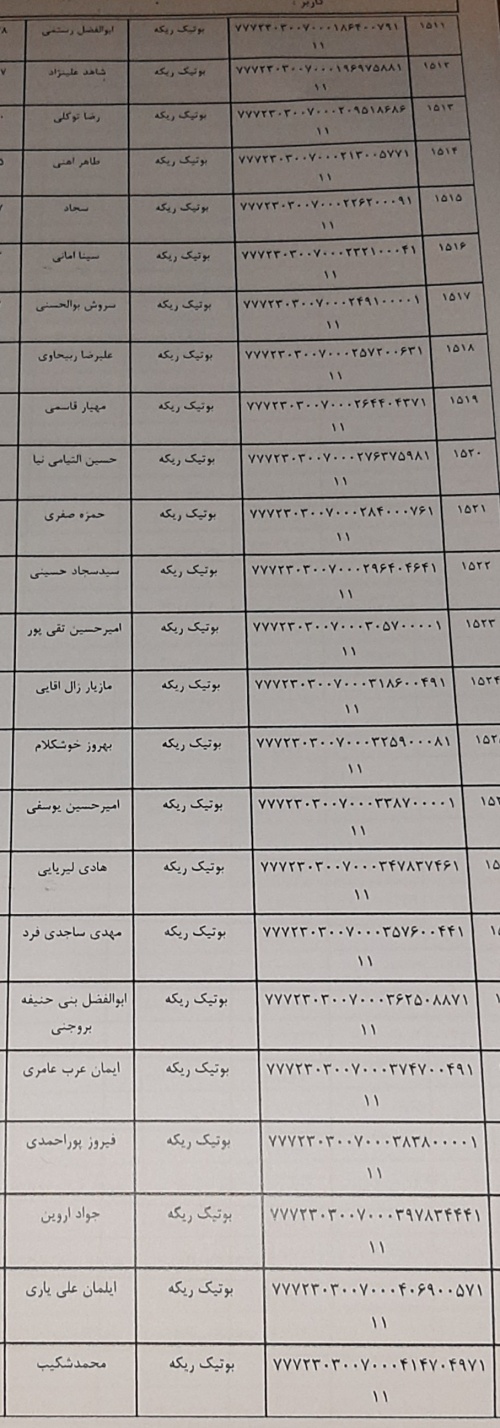 کاربر :
۱۵۱۱ ۷۷۷۲۳۰۳۰۰۷۰۰۰۱۸۶۴۰۰۷۹۱ بوتیک ریکه ابوالفضل رستمی
۱۱
۱۵۱۲ ۷۷۷۲۳۰۳۰۰۷۰۰۰۱۹۶۹۷۵۸۸۱ بوتیک ریکه شاهد علینژاد
۱۱
۱۵۱۳ ۷۷۷۲۳۰۳۰۰۷۰۰۰۲۰۹۵۱۸۶۸۶ بوتیک ریکه رضا توکلی
۱۱
۱۵۱۴ ۷۷۷۲۳۰۳۰۰۷۰۰۰۲۱۳۰۰۵۷۷۱ بوتیک ریکه طاهر اهنی
۱۱
۱۵۱۵ ۷۷۷۲۳۰۳۰۰۷۰۰۰۲۲۶۲۰۰۰۹۱ بوتیک ریکه سجاد
۱۱
۱۵۱۶ ۷۷۷۲۳۰۳۰۰۷۰۰۰۲۳۲۱۰۰۰۴۱ بوتیک ریکه سینا امانی
۱۱
۱۵۱۷ ۷۷۷۲۳۰۳۰۰۷۰۰۰۲۴۹۱۰۰۰۰۱ بوتیک ریکه سروش بوالحسنی
۱۱
۱۵۱۸ ۷۷۷۲۳۰۳۰۰۷۰۰۰۲۵۷۲۰۰۶۳۱ بوتیک ریکه علیرضا ربیحاوی
۱۱
۱۵۱۹ ۷۷۷۲۳۰۳۰۰۷۰۰۰۲۶۴۴۰۴۳۷۱ بوتیک ریکه مهیار قاسمی
۱۱
۱۵۲۰ ۷۷۷۲۳۰۳۰۰۷۰۰۰۲۷۶۳۷۵۹۸۱ بوتیک ریکه حسین التیامی نیا
۱۱
۱۵۲۱ ۷۷۷۲۳۰۳۰۰۷۰۰۰۲۸۴۰۰۰۷۶۱ بوتیک ریکه حمزه صفری
۱۱
۱۵۲۲ ۷۷۷۲۳۰۳۰۰۷۰۰۰۲۹۶۴۰۴۶۴۱ بوتیک ریکه سیدسجاد حسینی
۱۱
۱۵۲۳ ۷۷۷۲۳۰۳۰۰۷۰۰۰۳۰۵۷۰۰۰۰۱ بوتیک ریکه امیرحسین تقی پور
۱۱
۱۵۲۴ ۷۷۷۲۳۰۳۰۰۷۰۰۰۳۱۸۶۰۰۴۹۱ بوتیک ریکه مازیار زال اقایی
۱۱
۷۷۷۲۳۰۳۰۰۷۰۰۰۳۲۵۹۰۰۰۸۱ بوتیک ریکه بهروز خوشکلام
۱۱
۷۷۷۲۳۰۳۰۰۷۰۰۰۳۳۸۷۰۰۰۰۱ بوتیک ریکه امیرحسین یوسفی
۱۱
۷۷۷۲۳۰۳۰۰۷۰۰۰۳۴۷۸۳۷۴۶۱ بوتیک ریکه هادی لیریایی
۱۱
۷۷۷۲۳۰۳۰۰۷۰۰۰۳۵۷۶۰۰۴۴۱ بوتیک ریکه مهدی ساجدی فرد
۱۱
۷۷۷۲۳۰۳۰۰۷۰۰۰۳۶۲۵۰۸۸۷۱ بوتیک ریکه ابوالفضل بنی حنیفه
۱۱ بروجنی
۷۷۷۲۳۰۳۰۰۷۰۰۰۳۷۴۷۰۰۴۹۱ بوتیک ریکه ایمان عرب عامری
۱۱
۷۷۷۲۳۰۳۰۰۷۰۰۰۳۸۳۸۰۰۰۰۱ بوتیک ریکه فیروز پوراحمدی
۱۱
۷۷۷۲۳۰۳۰۰۷۰۰۰۳۹۷۸۳۴۴۴۱ بوتیک ریکه جواد اروین
۱۱
۷۷۷۲۳۰۳۰۰۷۰۰۰۴۰۶۹۰۰۵۷۱ بوتیک ریکه ایلمان علی یاری
۱۱
۷۷۷۲۳۰۳۰۰۷۰۰۰۴۱۴۷۰۴۹۷۱ بوتیک ریکه محمدشکیب
۱۱